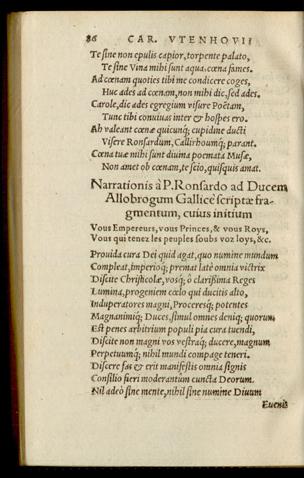 86 CAR. VTENHOVII
Te sine non epulis capior, torpente palato,
Te sine Vina mihi sunt aqua: cœna fames.
Ad cœnam quoties tibi me condicere coges,
Huc ades ad cœnam, non mihi dic, sed ades.
Carole, dic ades egregium visure Poëtam,
Tunc tibi conuiuas inter & hospes ero.
Ah valeant cœnæ quicunq; cupidine ducti
Visere Ronsardum, Callirhoumq; parant.
Cœna tuæ mihi sunt diuina poemata Musæ,
Non amet ob cœnam, te scio, quisquis amat.
Narrationis à P. Ronsardo ad Ducem
Allobrogum Gallicè scriptæ fra-
gmentum, cuius initium
Vous Empereurs, vous Princes, & vous Roys,
Vous qui tenez les peuples soubs voz loys, &c.
Prouida cura Dei quid agat, quo numine mundum
Compleat, imperioq; premat latè omnia victrix
Discite Christicolæ, vosq; ò clarissima Reges
Lumina, progeniem cœlo qui ducitis alto,
Induperatores magni, Proceresq; potentes
Magnanimiq; Duces, simul omnes deniq; quorum
Est penes arbitrium populi pia cura tuendi,
Discite non magni vos vestraq; ducere, magnum
Perpetuumq; nihil mundi compage teneri.
Discere fas & erit manifestis omnia signis
Consilio fieri moderantum cuncta Deorum.
Nil adeò sine mente, nihil sine numine Diuum
Euenis